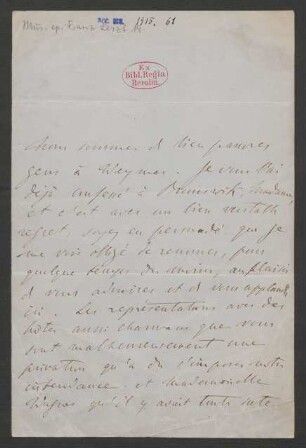 Mus. ep. Franz Liszt 61
acc. mss. 1915. 61
Ex
Bibl. Regia
Berolin.
Nous sommes de bien pauvres
gens à Weymar. Je vous l'ai
déjà confessé à
et c'est avec un bien véritable
regret, soyez en persuadée que je
me vois obligé de renoncer, pour
quelque temps du moins, au plaisir
de vous admirer et de vous applaudir
ici. Les représentations avec des
hôtes aussi charmans que vous
sont malheureusement une
privation qu'a dû s'imposer notre
intendance et Mademoiselle
Wagner qu'il y avait toute sorte